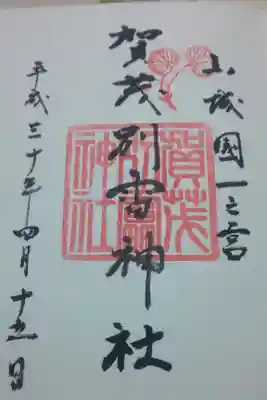 山城國一之宮
賀茂別雷神社
平成三十年四月十五日
賀茂別雷神社